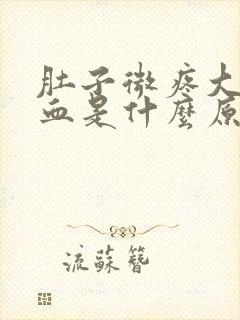 肚子微疼大
血是什麼原
流蘇簪